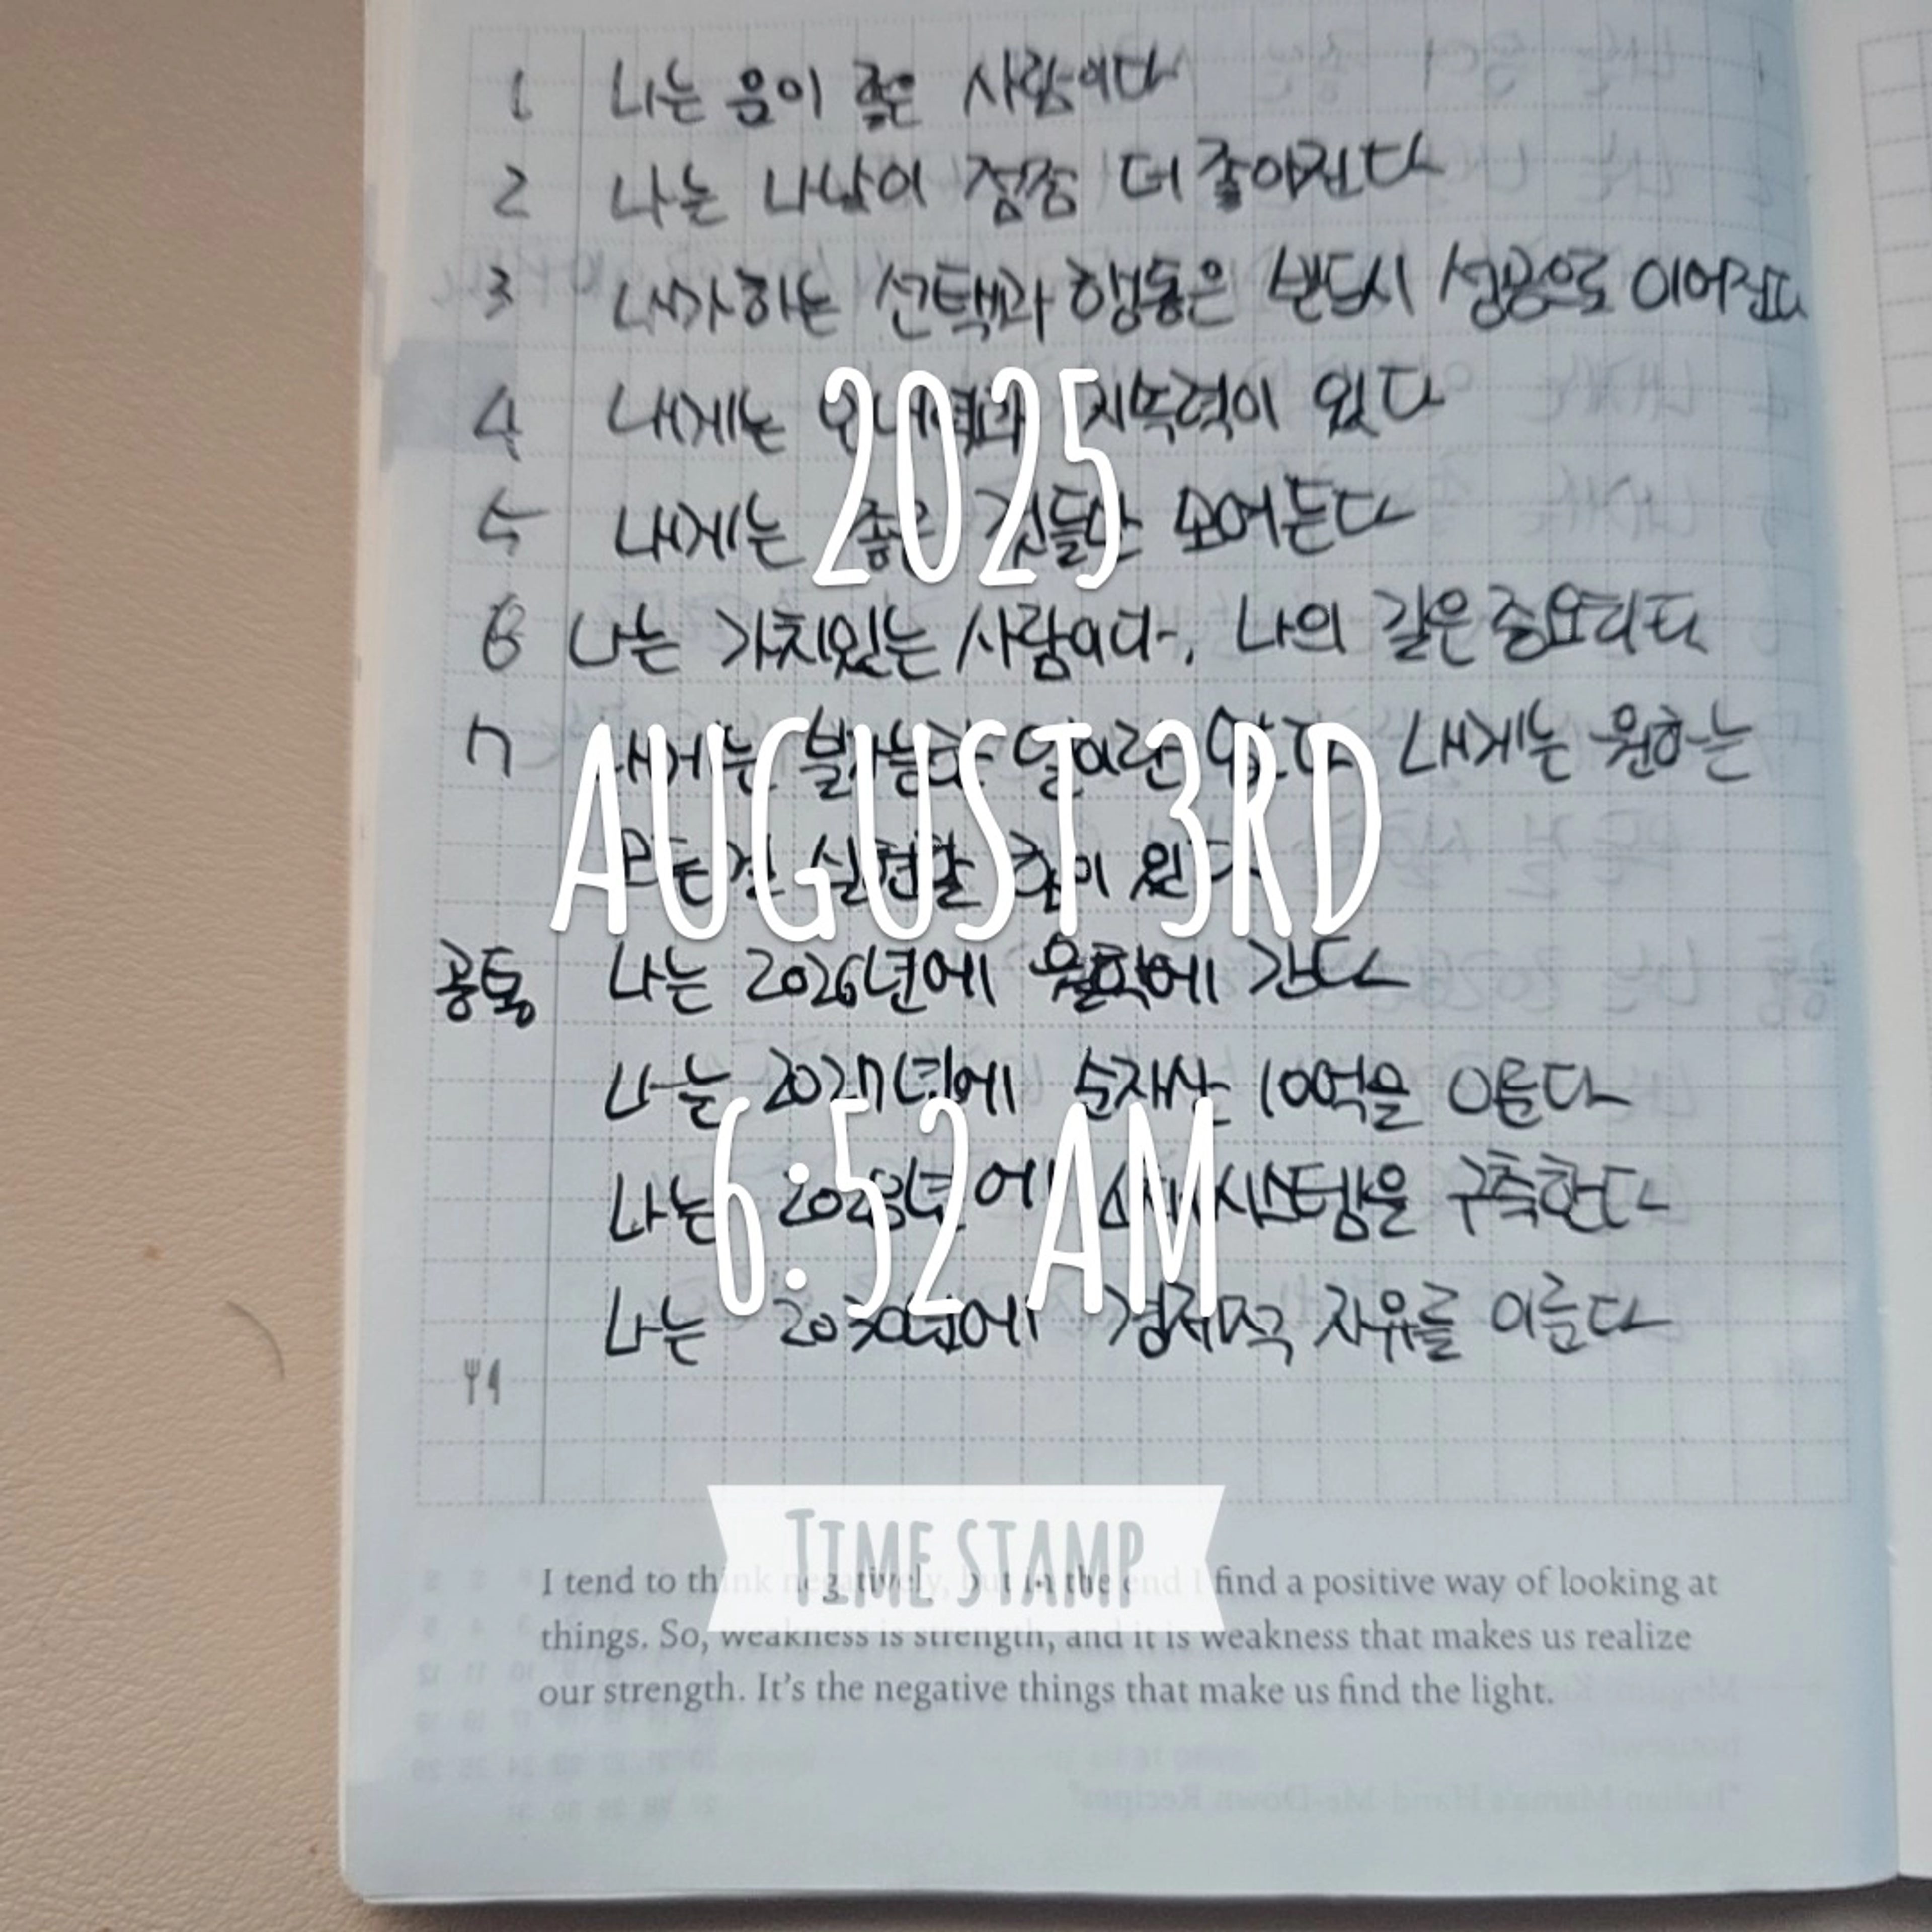 1 나는 운이 좋은 사람이다
2 나는 나날이 점점 더 좋아진다
3 내가하는 선택과 행동은 반드시 성공으로 이어진다
4 내게는 인내력과 지속력이 있다
5 내게는 좋은 것들만 모여든다
6 나는 가치있는 사람이다. 나의 길은 중요하다
7 내게는 불가능한 일이란 없다 내게는 원하는
모든걸 실현할 힘이 있다
공통 나는 2026년에 유학에 간다
나는 2027년에 순자산 10억을 이룬다
나는 2028년에 시스템을 구축한다
나는 2030년에 경제적 자유를 이룬다
2025
AUGUST 3RD
6:52 AM
TIME STAMP
I tend to think negatively, but in the end I find a positive way of looking at
things. So, weakness is strength, and it is weakness that makes us realize
our strength. It's the negative things that make us find the light.